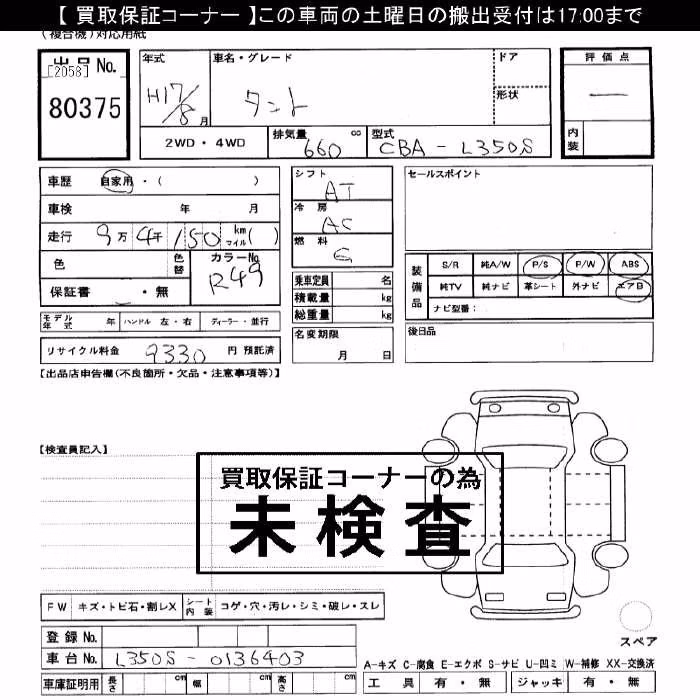 【 買取保証コーナー 】この車両の土曜日の搬出受付は17:00まで
(複合機)対応用紙
出品No.
[2058]
80375
年式
H17/8月
車名・グレード
タント
ドア
形状
評価点
—
内装
2WD・4WD
排気量
660 cc
型式
CBA - L350S
車歴 自家用・( )
車検 年 月
走行 9万 4千 150 km マイル( )
色
色替
カラーNo.
R49
保証書 ・無
シフト
AT
冷房
AC
燃料
G
乗車定員 名
積載量 kg
総重量 kg
セールスポイント
装備品
S/R 純A/W P/S P/W ABS
純TV 純ナビ 革シート 外ナビ エアB
ナビ型番:
モデル年式 年 ハンドル 左・右 ディーラー・並行
リサイクル料金 9330 円 預託済
名変期限
月 日
後日品
【出品店申告欄(不良箇所・欠品・注意事項等)】
【検査員記入】
買取保証コーナーの為
未検査
FW キズ・トビ石・割レX シート内装 コゲ・穴・汚レ・シミ・破レ・スレ
登録No.
車台No. L350S-0136403
車庫証明用 長さ cm 幅 cm 高さ cm
スペア
A-キズ C-腐食 E-エクボ S-サビ U-凹ミ W-補修 XX-交換済
工具 有・無 ジャッキ 有・無